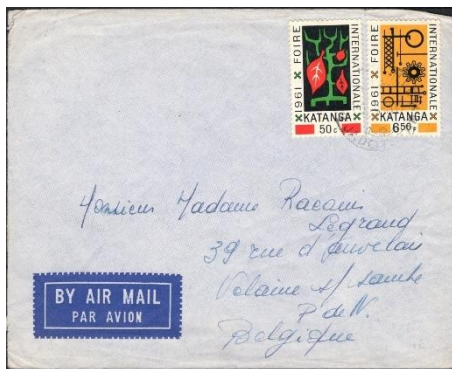 1961 FOIRE INTERNATIONALE
KATANGA
50c
1961 FOIRE INTERNATIONALE
KATANGA
6.50F
Monsieur Madame Racanis
Legrand
39 rue d'auvelais
Velaine s/ sambre
P de N.
Belgique
BY AIR MAIL
PAR AVION